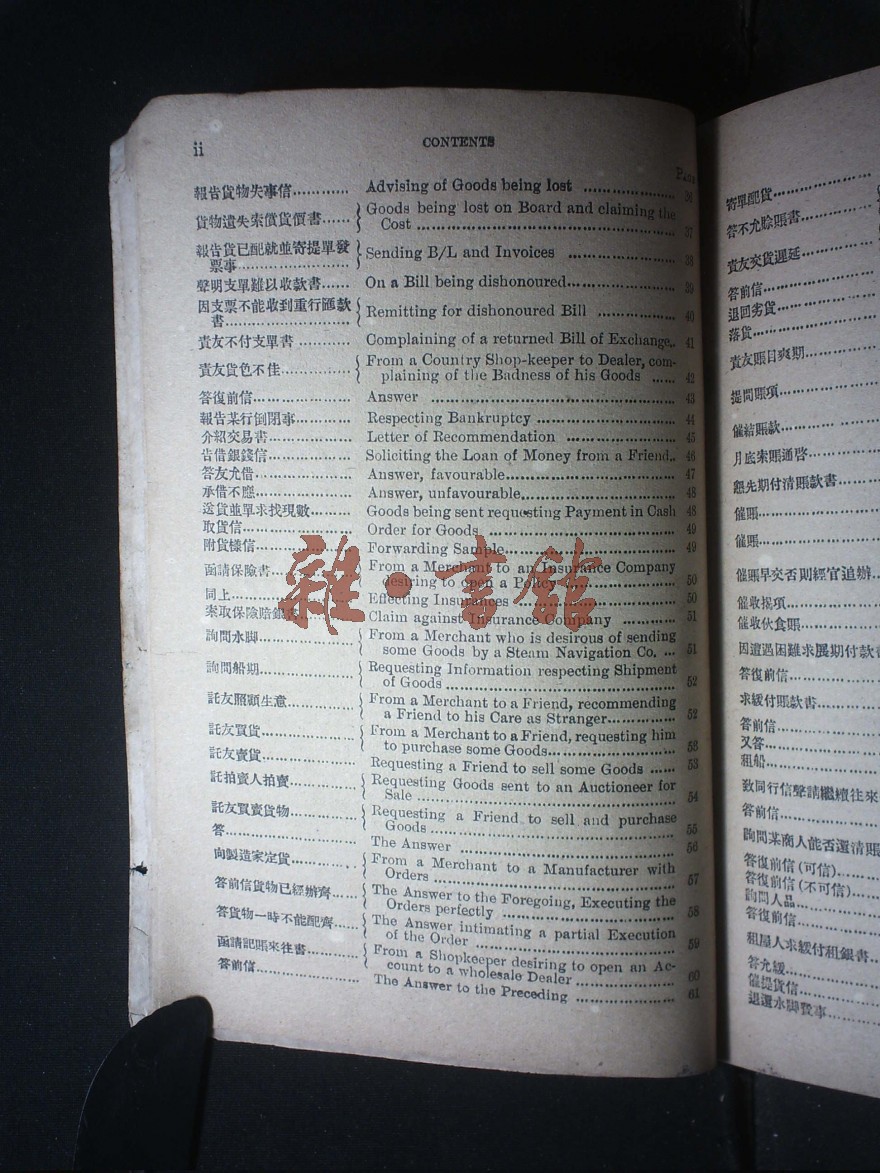 ii
CONTENTS
PAGE
報告貨物失事信............ Advising of Goods being lost .................. 36
貨物遺失索償貨價書...... { Goods being lost on Board and claiming the
Cost .................................. 37
報告貨已配就並寄提單發
票事.................. { Sending B/L and Invoices .................. 38
聲明支單難以收款書...... On a Bill being dishonoured.................. 39
因支票不能收到重行匯款
書........................ { Remitting for dishonoured Bill .............. 40
貴友不付支單書 ........... Complaining of a returned Bill of Exchange.. 41
貴友貨色不佳............... { From a Country Shop-keeper to Dealer, com-
plaining of the Badness of his Goods ...... 42
答復前信..................... Answer .................................. 43
報告某行倒閉事............ Respecting Bankruptcy ..................... 44
介紹交易書.................. Letter of Recommendation .................. 45
告借銀錢信.................. Soliciting the Loan of Money from a Friend.. 46
答友允借..................... Answer, favourable........................ 47
承借不應..................... Answer, unfavourable..................... 48
送貨並單求找現數......... Goods being sent requesting Payment in Cash 48
取貨信........................ Order for Goods........................... 49
附貨樣信..................... Forwarding Sample........................ 49
函請保險書.................. From a Merchant to an Insurance Company
desiring to open a Policy.................. 50
同上........................... Effecting Insurances ..................... 50
索取保險賠銀書............ Claim against Insurance Company ......... 51
詢問水脚..................... { From a Merchant who is desirous of sending
some Goods by a Steam Navigation Co. ... 51
詢問船期..................... { Requesting Information respecting Shipment
of Goods .............................. 52
託友照顧生意............... { From a Merchant to a Friend, recommending
a Friend to his Care as Stranger............ 52
託友買貨..................... { From a Merchant to a Friend, requesting him
to purchase some Goods.................. 53
託友賣貨..................... Requesting a Friend to sell some Goods ...... 53
託拍賣人拍賣............... { Requesting Goods sent to an Auctioneer for
Sale .................................. 54
託友買賣貨物............... { Requesting a Friend to sell and purchase
Goods.................................. 55
答.............................. The Answer .............................. 56
向製造家定貨............... { From a Merchant to a Manufacturer with
Orders .................................. 57
答前信貨物已經辦齊...... { The Answer to the Foregoing, Executing the
Orders perfectly ........................ 58
答貨物一時不能配齊...... { The Answer intimating a partial Execution
of the Order ........................... 59
函請記賬來往書............ { From a Shopkeeper desiring to open an Ac-
count to a wholesale Dealer ............... 60
答前信........................ The Answer to the Preceding ............... 61
寄單配貨.....................
答不允賒賬書...............
貴友交貨遲延...............
答前信........................
退回劣貨.....................
落貨...........................
貴友賬目爽期...............
提問賬項.....................
催結賬款.....................
月底索賬通啓...............
懇先期付清賬款書.........
催賬...........................
催賬...........................
催賬早交否則經官追辦...
催收揭項.....................
催收伙食賬..................
因遭遇困難求展期付款書
答復前信.....................
求緩付賬款書...............
答前信........................
又答...........................
租船...........................
致同行信聲請繼續往來
答前信........................
詢問某商人能否還清賬
答復前信(可信)............
答復前信(不可信).........
詢問人品.....................
答復前信.....................
租屋人求緩付租銀書......
答允緩........................
催提貨信.....................
退還水脚費事...............
雜·書館